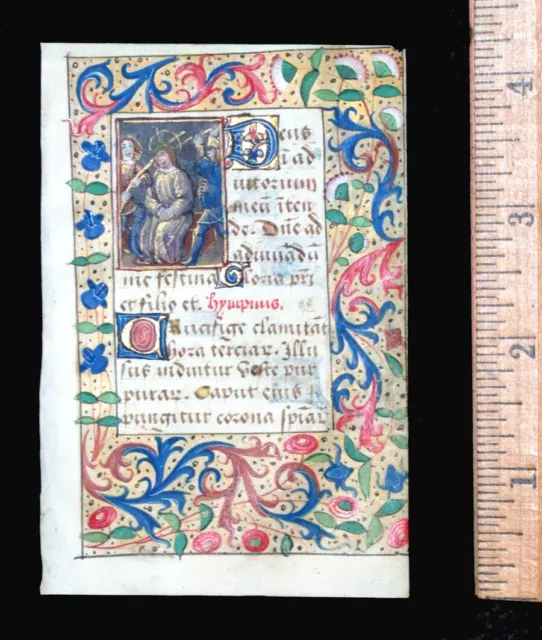 Deus
i ad
iutorium
meu īten
de. Dn̄e ad
adiuuādū
me festina Gloria pr̄i
et filio et. hympnus.
Crucifige clamitāt
hora terciar. Illu
sus induitur veste pur
purar. Caput eius
pungitur corona spīar
4
3
2
1